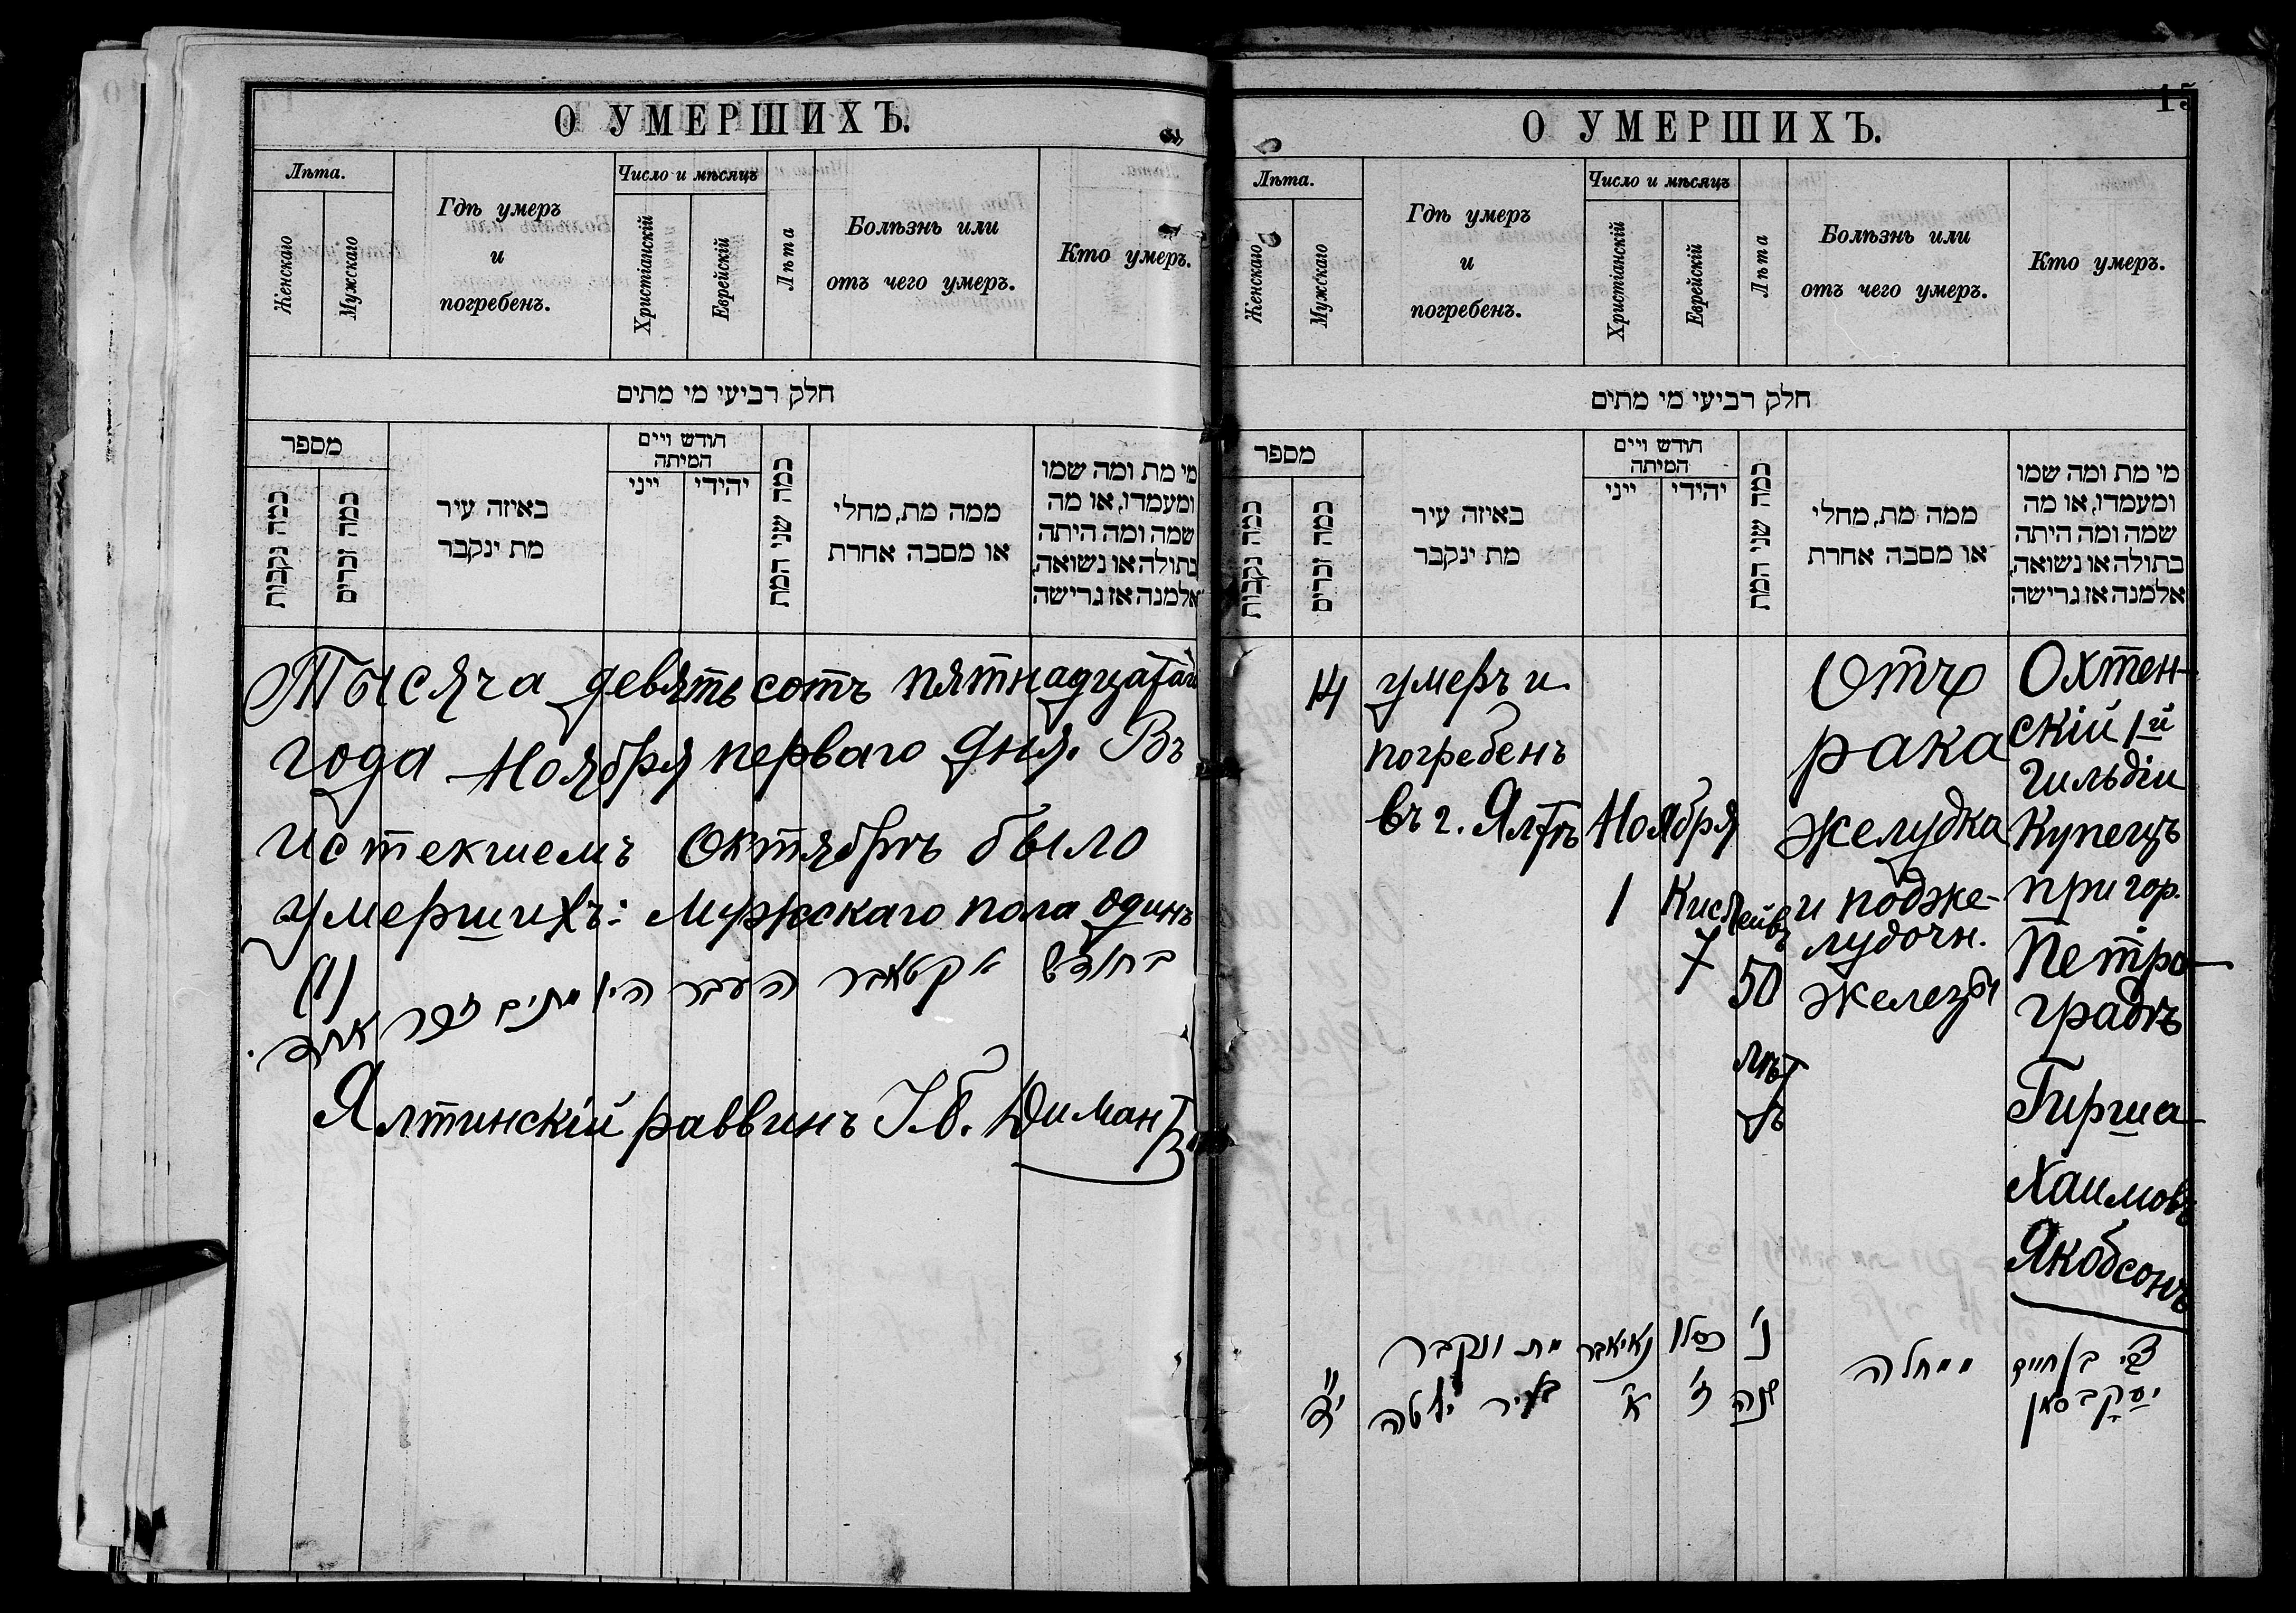 О УМЕРШИХЪ.
Лѣта.
Женскаго
Мужскаго
Гдѣ умеръ
и
погребенъ.
Число и мѣсяцъ
Христіанскій
Еврейскій
Лѣта
Болѣзнь или
отъ чего умеръ.
Кто умеръ.
חלק רביעי מי מתים
מספר
כמה נקבות
כמה זכרים
באיזה עיר
מת ינקבר
חודש ויים
המיתה
ייני
יהידי
כמה שני המת
ממה מת, מחלי
או מסבה אחרת
מי מת ומה שמו
ומעמדו, או מה
שמה ומה היתה
בתולה או נשואה,
אלמנה אז גרישה
Тысяча девятьсотъ пятнадцатаго
года Ноября перваго дня. Въ
истекшемъ Октябрѣ было
умершихъ: Мужскаго пола одинъ
(1)
בחודש אקטאבר העבר היו מתים זכר אחד.
Ялтинскій раввинъ І. б. Димантъ
15
О УМЕРШИХЪ.
Лѣта.
Женскаго
Мужскаго
Гдѣ умеръ
и
погребенъ.
Число и мѣсяцъ
Христіанскій
Еврейскій
Лѣта
Болѣзнь или
отъ чего умеръ.
Кто умеръ.
חלק רביעי מי מתים
מספר
כמה נקבות
כמה זכרים
באיזה עיר
מת ינקבר
חודש ויים
המיתה
ייני
יהידי
כמה שני המת
ממה מת, מחלי
או מסבה אחרת
מי מת ומה שמו
ומעמדו, או מה
שמה ומה היתה
בתולה או נשואה,
אלמנה אז גרישה
14
умеръ и
погребенъ
въ г. Ялтѣ
Ноября
1
Кислейвъ
7
50
лѣт
ъ
Отъ
рака
желудка
и подже-
лудочн.
железы
Охтен-
скій 1й
гильдіи
Купецъ
при гор.
Петро-
градѣ
Гирша
Хаимовъ
Якобсонъ
צבי בן חיים
יעקבסאן
ממחלה
נ'
שנה
כסלו
ז'
נאיאבר
א'
מת ונקבר
בעיר יאלטה
י"ד